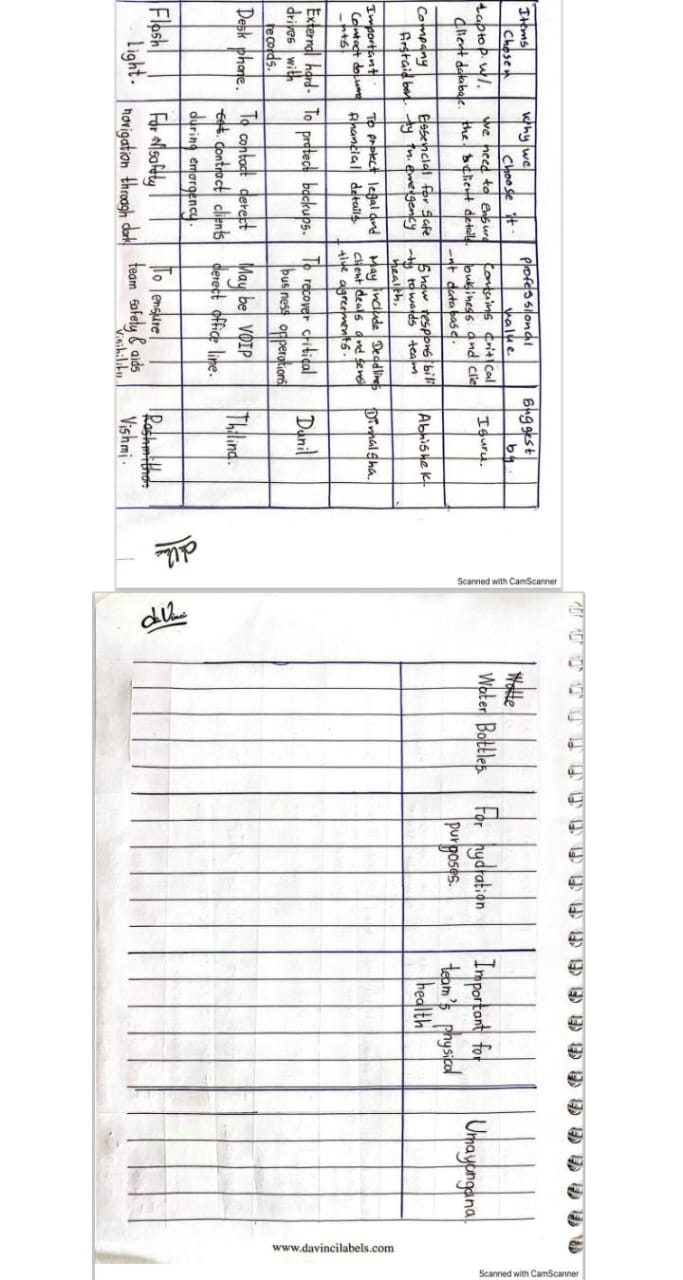 Items Chosen
why we choose it.
professional value.
suggest by.
Laptop. w/. Client databse.
we need to ensure the. client details.
Contains Critical business and clie -nt database.
Isuru.
Company firstaid box.
Essencial for safe -ty in. emergency
Show responsibili -ty towards team health.
Abhishek
Important. Contact docume -nts.
To protect legal and financial details.
May include Deadlines client deals and sensi -tive agreements.
Dimalsha.
External hard- drives with records.
To protect backups.
To recover critical business opperations
Danil
Desk phone.
To contact derect contract clients during emergency.
May be VOIP derect office line.
Thilina.
Flash light.
For safety navigation through dark
To ensure team safety & aids visibility
Vishmi.
Scanned with CamScanner
Water Bottles
For hydration purposes.
Important for team's physical health
Umayangana.
www.davincilabels.com
Scanned with CamScanner